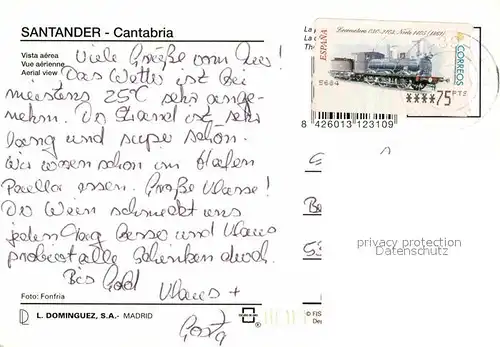 SANTANDER - Cantabria
Vista aérea
Vue aérienne
Aerial view
Viele Grüße vom
Das Wetter ist bei
meistens 25°C sehr ange-
nehm. Der Strand ist sehr
lang und super schön.
Wir waren schon im Hafen
Paella essen. Große Klasse!
Der Wein schmeckt uns
jeden Tag besser und Klaus
probiert alle Schinken durch.
Bis bald
Klaus +
Foto: Fonfria
L. DOMINGUEZ, S.A.- MADRID
La
La
Th
ESPAÑA
CORREOS
****75 PTS
8 426013 123109
privacy protection
Datenschutz
© FIS
De